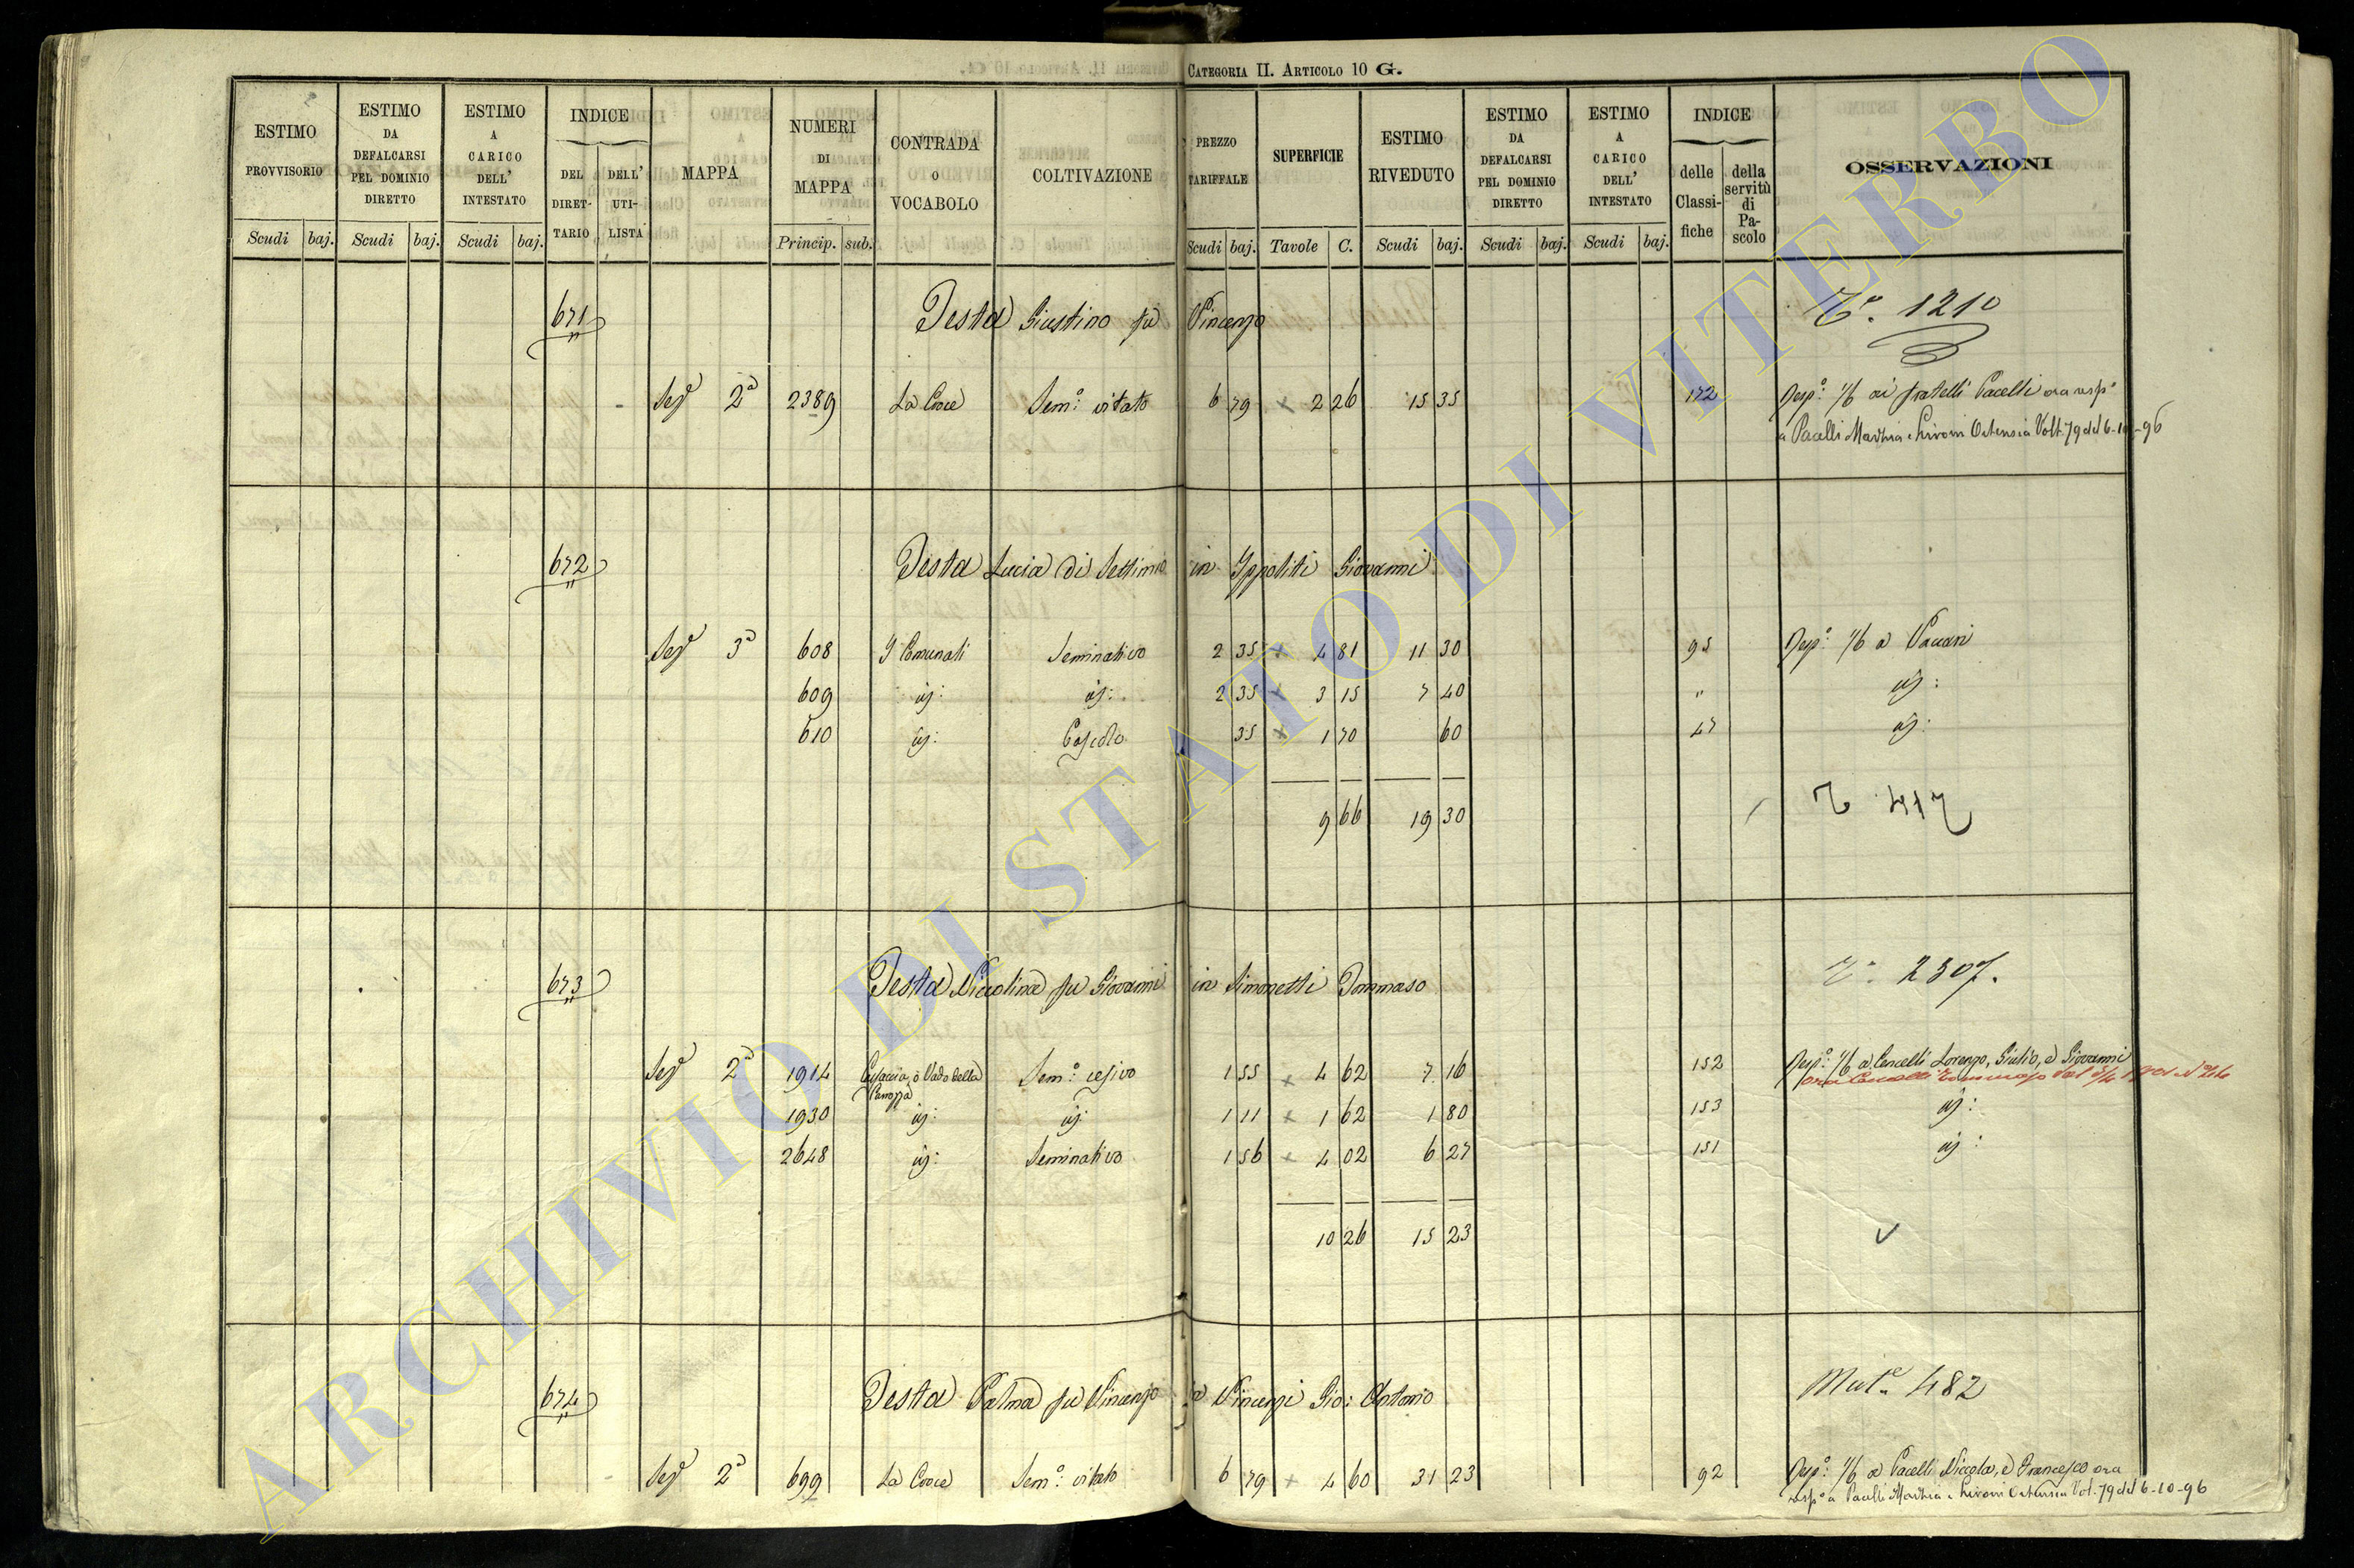 CATEGORIA II. ARTICOLO 10 G.
ESTIMO PROVVISORIO
ESTIMO DA DEFALCARSI PEL DOMINIO DIRETTO
ESTIMO A CARICO DELL' INTESTATO
INDICE
DEL DIRET-TARIO
DELL' UTI-LISTA
MAPPA
NUMERI DI MAPPA
CONTRADA O VOCABOLO
COLTIVAZIONE
PREZZO TARIFFALE
SUPERFICIE
ESTIMO RIVEDUTO
ESTIMO DA DEFALCARSI PEL DOMINIO DIRETTO
ESTIMO A CARICO DELL' INTESTATO
INDICE
delle Classi-fiche
della servitù di Pa-scolo
OSSERVAZIONI
Scudi baj. Scudi baj. Scudi baj. Princip. sub. Scudi baj. Tavole C. Scudi baj. Scudi baj. Scudi baj.
671 Testa Giustino fu Vincenzo 1210
Sez 2ª 2389 La Croce Sem.º vitato 6 79 2 26 15 35 172 Risp.º 1/6 ai fratelli Pacelli ora risp.º
a Pacelli Mattia e Ortensia Volt. 79 del 6-10-96
672 Testa Lucia di Settimio in Ippoliti Giovanni
Sez 3ª 608 I Comunali Seminativo 2 35 4 81 11 30 95 Risp.º 1/6 a Vaccari
609 id: id: 2 35 3 15 7 40 " id:
610 id: Pascolo 35 1 70 60 47 id:
9 66 19 30 417
673 Testa Niccolina fu Giovanni in Simonetti Tommaso 2307.
Sez 2ª 1914 Casaccia, o Vado della Sem.º cesivo 1 55 4 62 7 16 152 Risp.º 1/6 a Cencelli Lorenzo, Giulio, e Giovanni
1930 id: id: 1 11 1 62 1 80 153 id:
2648 id: Seminativo 1 56 4 02 6 27 151 id:
10 26 15 23
674 Testa Palma fu Vincenzo a Vincenzi Gio: Antonio Mut.ª 482
Sez 2ª 699 La Croce Sem.º vitato 6 79 4 60 31 23 92 Risp.º 1/6 a Pacelli Niccola, e Francesco ora
risp.º a Pacelli Mattia e Ortensia Vol. 79 del 6-10-96
ARCHIVIO DI STATO DI VITERBO